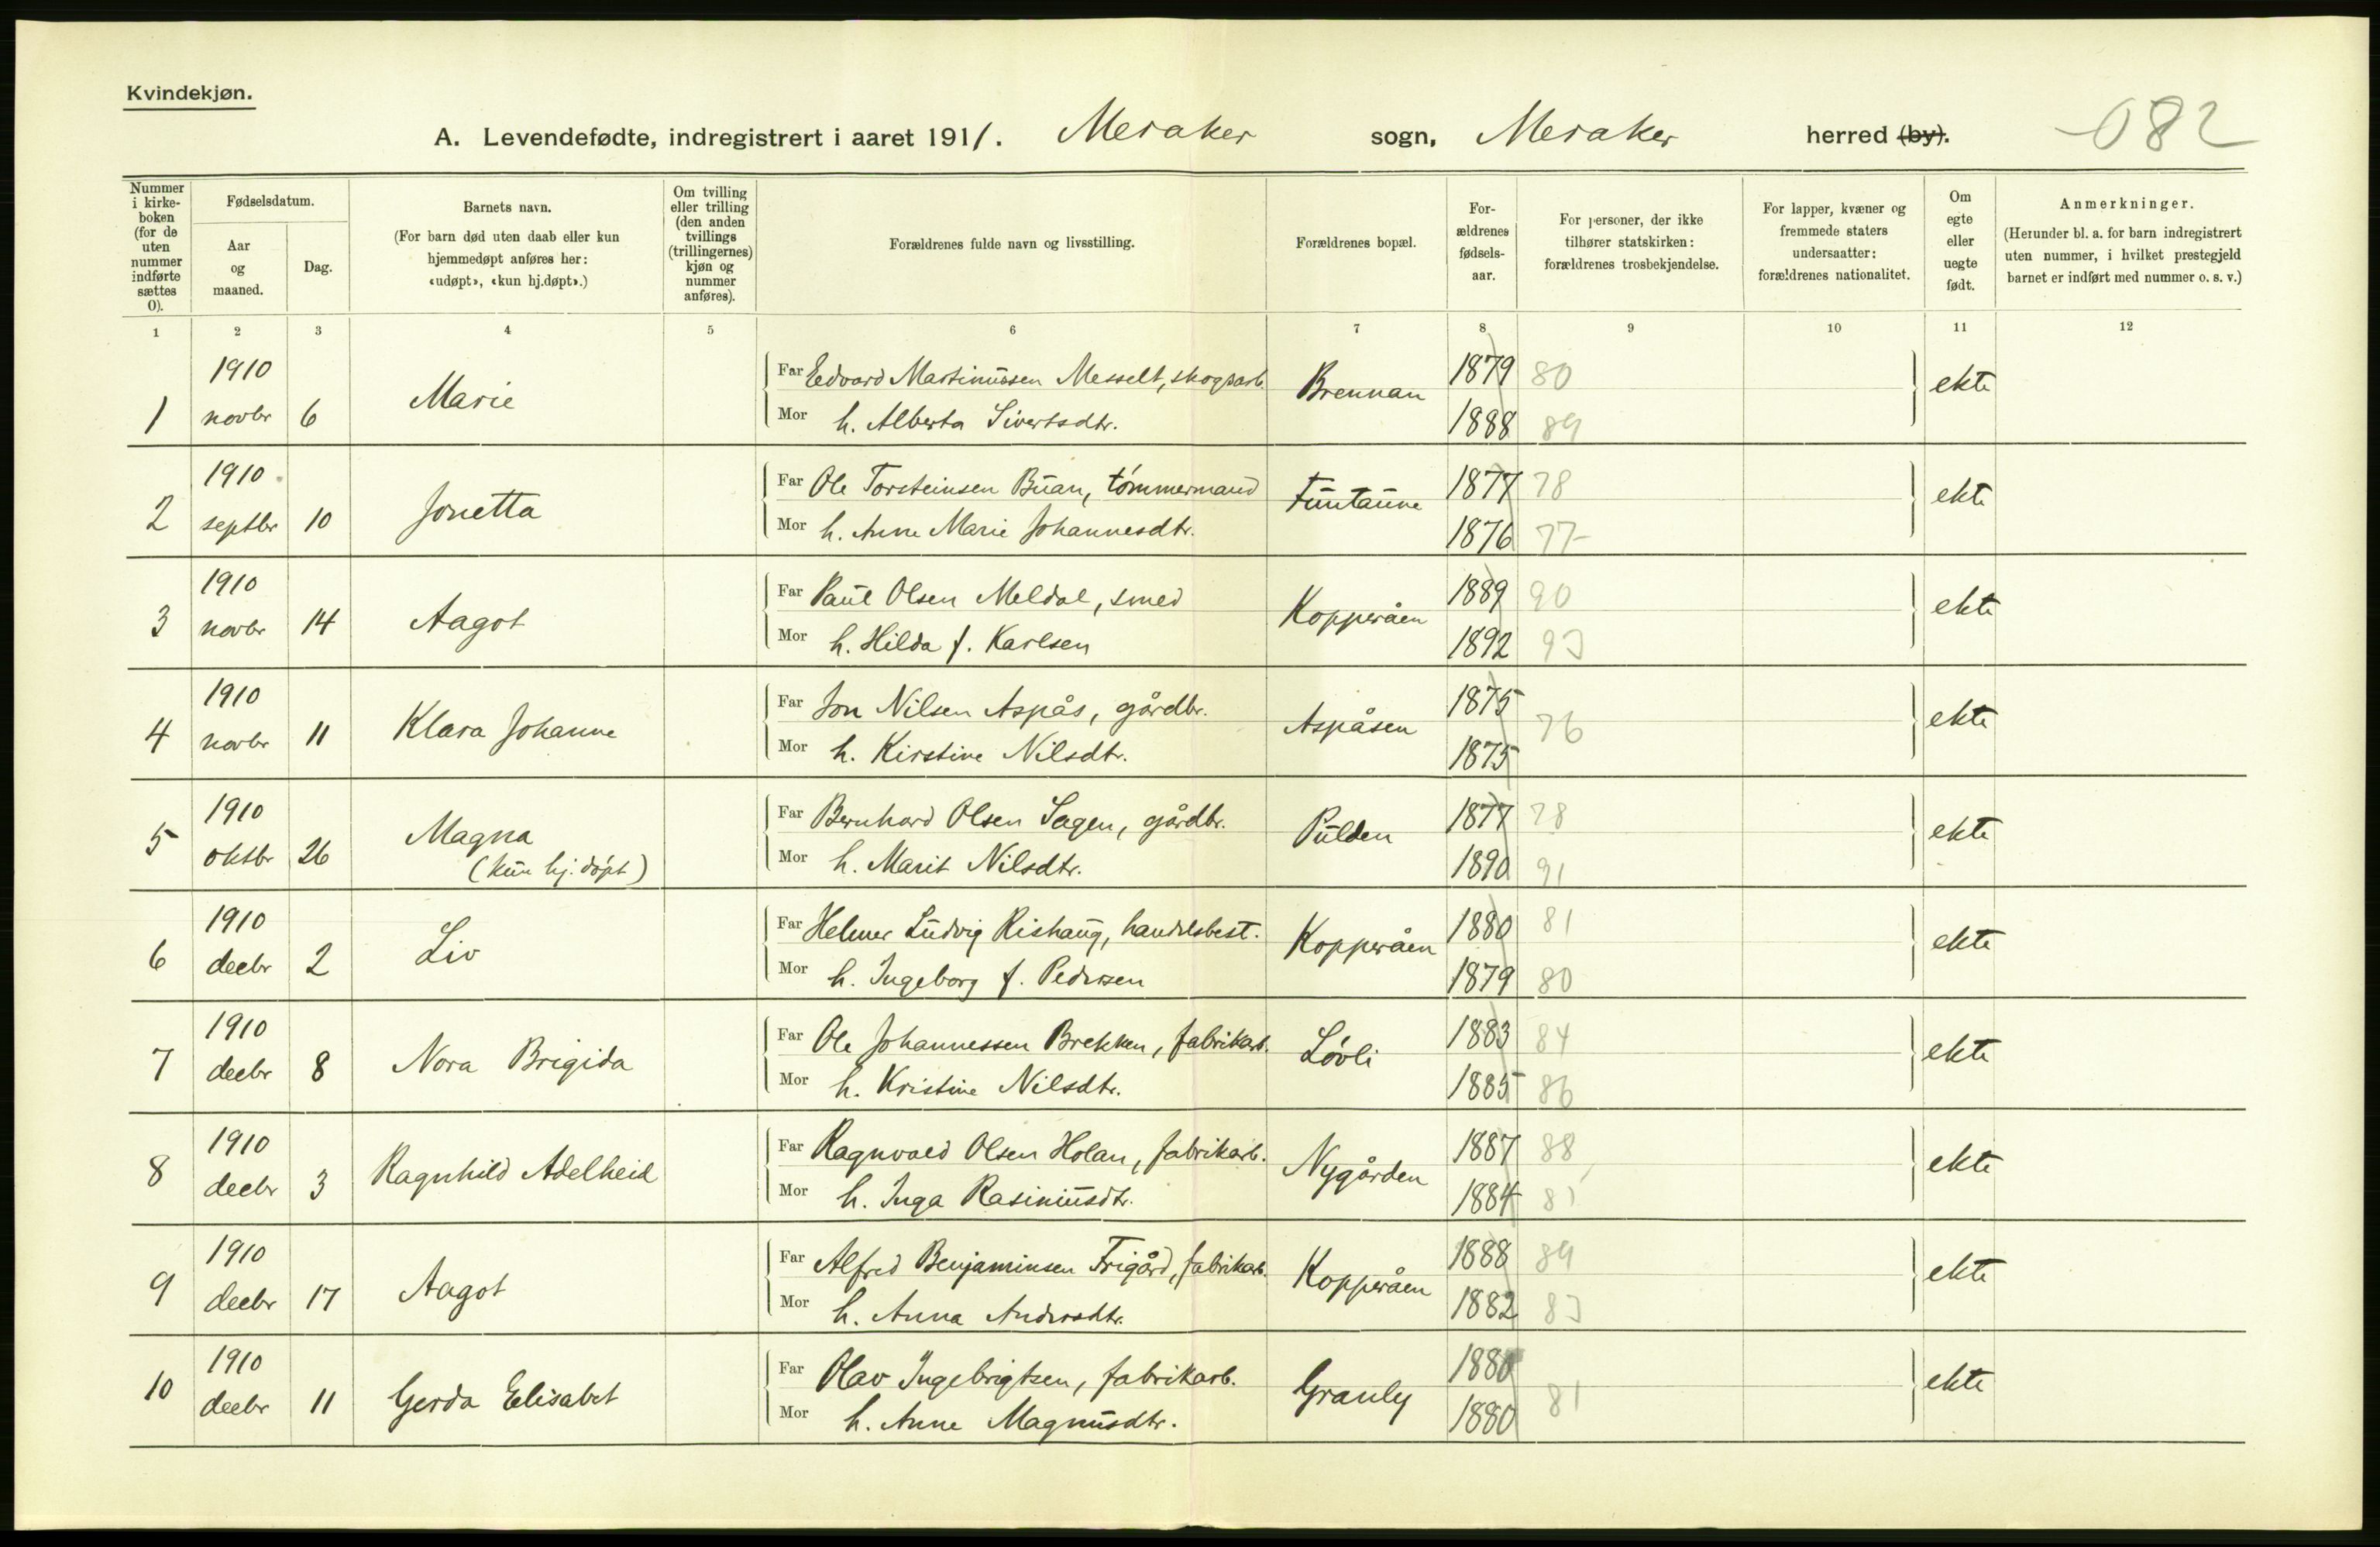 Kvindekjøn.
A. Levendefødte, indregistrert i aaret 1911. Meraker sogn, Meraker herred (by). 082
Nummer i kirke-boken (for de uten nummer indførte sættes 0).
Fødselsdatum.
Aar og maaned.
Dag.
Barnets navn.
(For barn død uten daab eller kun hjemmedøpt anføres her: «udøpt», «kun hj.døpt».)
Om tvilling eller trilling (den anden tvillings (trillingernes) kjøn og nummer anføres).
Forældrenes fulde navn og livsstilling.
Forældrenes bopæl.
For-ældrenes fødsels-aar.
For personer, der ikke tilhører statskirken: forældrenes trosbekjendelse.
For lapper, kvæner og fremmede staters undersaatter: forældrenes nationalitet.
Om egte eller uegte født.
Anmerkninger.
(Herunder bl. a. for barn indregistrert uten nummer, i hvilket prestegjeld barnet er indført med nummer o. s. v.)
1 2 3 4 5 6 7 8 9 10 11 12
1 1910 novbr 6 Marie Far Edvard Martinussen Messelt, skogsarb. Brennan 1879 80 ekte
Mor h. Alberta Sivertsdtr. 1888 89
2 1910 septbr 10 Jonetta Far Ole Torsteinsen Buan, tømmermand Funtaune 1877 78 ekte
Mor h. Anne Marie Johannesdtr. 1876 77
3 1910 novbr 14 Aagot Far Paul Olsen Meldal, smed Kopperåen 1889 90 ekte
Mor h. Hilda f. Karlsen 1892 93
4 1910 novbr 11 Klara Johanne Far Jon Nilsen Aspås, gårdbr. Aspåsen 1875 76 ekte
Mor h. Kirstine Nilsdtr. 1875
5 1910 oktbr 26 Magna (kun hj. døpt) Far Bernhard Olsen Sagen, gårdbr. Pulden 1877 78 ekte
Mor h. Marit Nilsdtr. 1890 91
6 1910 decbr 2 Liv Far Helmer Ludvig Rishaug, handelsbest. Kopperåen 1880 81 ekte
Mor h. Ingeborg f. Pedersen 1879 80
7 1910 decbr 8 Nora Brigida Far Ole Johannessen Brekken, fabrikarb. Løvli 1883 84 ekte
Mor h. Kristine Nilsdtr. 1885 86
8 1910 decbr 3 Ragnhild Adelheid Far Ragnvald Olsen Holan, fabrikarb. Nygården 1887 88 ekte
Mor h. Inga Rasinusdtr. 1884 85
9 1910 decbr 17 Aagot Far Alfred Benjaminsen Frigård, fabrikarb. Kopperåen 1888 89 ekte
Mor h. Anna Andersdtr. 1882 83
10 1910 decbr 11 Gerda Elisabet Far Olav Ingebrigtsen, fabrikarb. Granly 1880 81 ekte
Mor h. Anne Magnusdtr. 1880